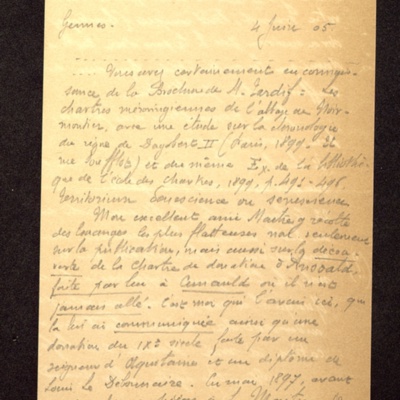 Gennes. 4 Juin 05
.... Vous avez certainement eu connais-
sance de la Brochure de M. Tardif: Les
chartres mérovingiennes de l'abbaye de Noir-
moutier, avec une étude sur la chronologie
du règne de Dagobert II (Paris, 1899
) et du même Ex. de la Biblothè
que de l'école des chartes, 1899, p.
Mon excellent ami Maître y récolte
des louanges les plus flatteuses non seulement
sur la publication, mais aussi sur la décou-
verte de la chartre de donation d'Ansoald,
faite par lui à Cunauld où il n'est
jamais allé. C'est moi qui l'avais ici, qui
la lui ai communiquée ainsi qu'une
donation du IXe siècle faite par un
d'Aquitaine et un diplôme de
Louis le Débonnaire. En mai 1897, avant